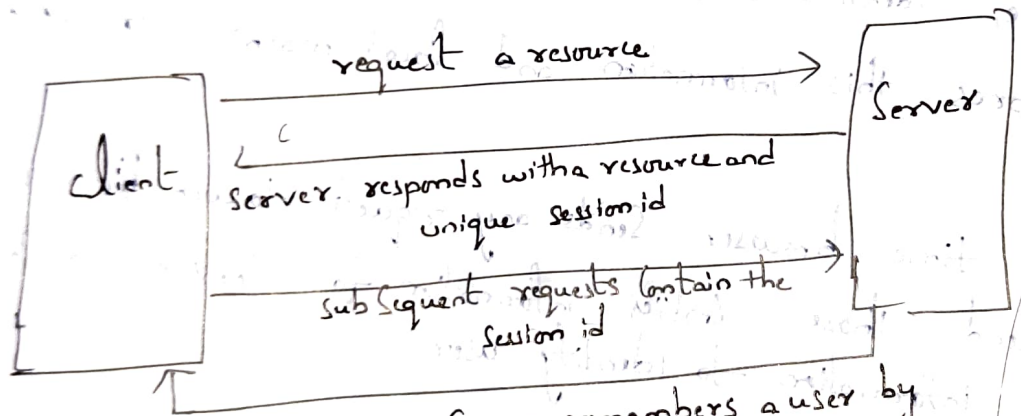 request a resource
Server
client
Server responds with a resource and
unique session id
subsequent requests contain the
session id
a user by